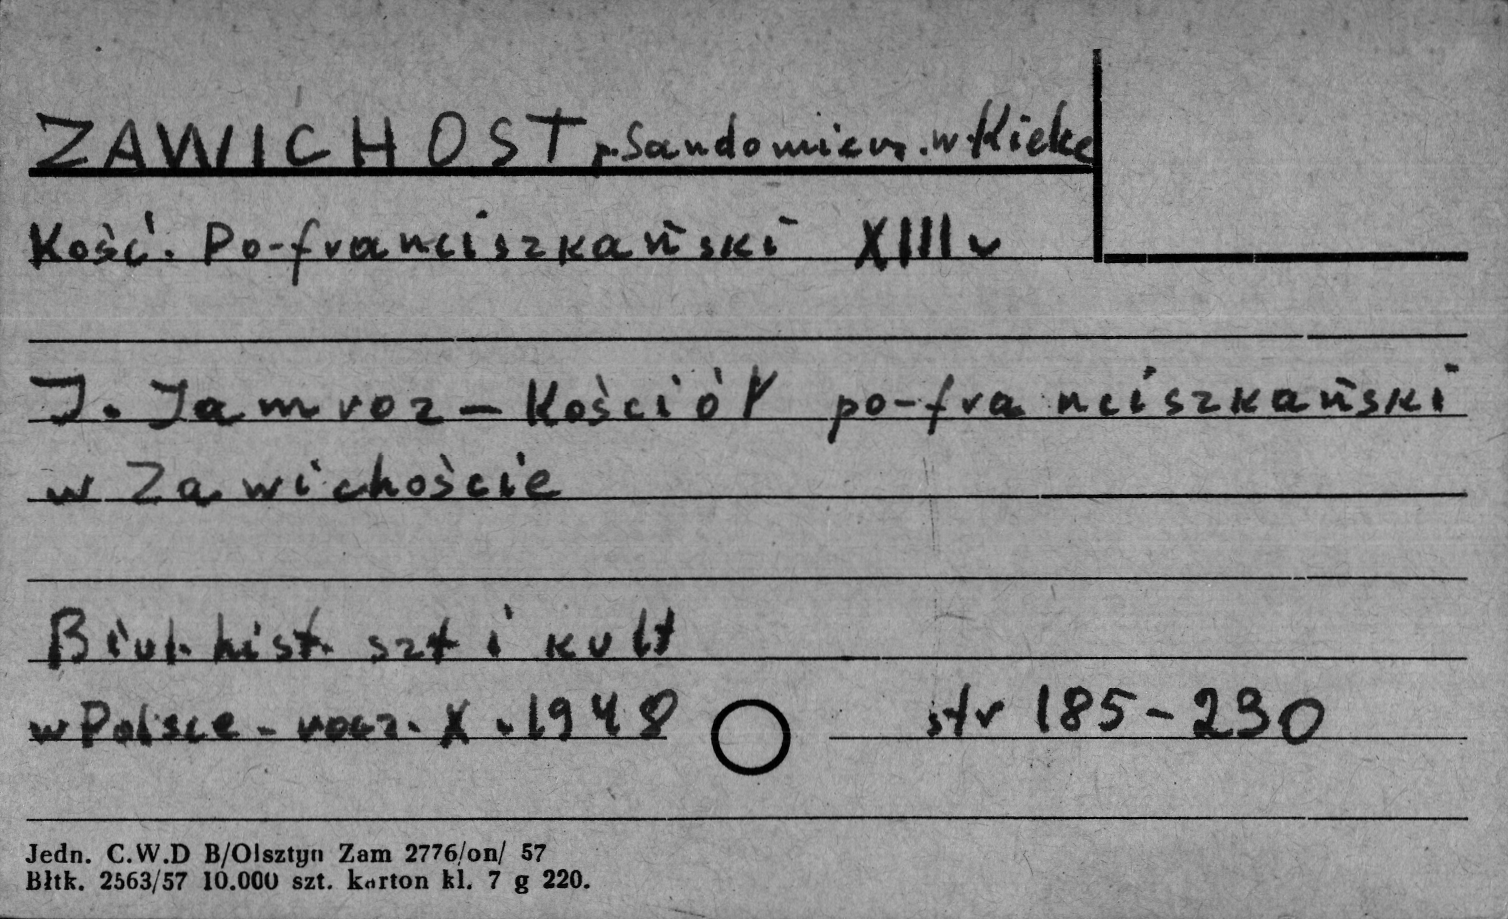 ZAWICHOST p. Sandomierz. w Kielce
Kość. Po-franciszkański XIII w
J. Jamroz - Kościół po-franciszkański
w Zawichoście
Biul. hist. szt i kult
w Polsce - rocz. X. 1948 str 185-230
Jedn. C.W.D B/Olsztyn Zam 2776/on/ 57
Błtk. 2563/57 10.000 szt. karton kl. 7 g 220.